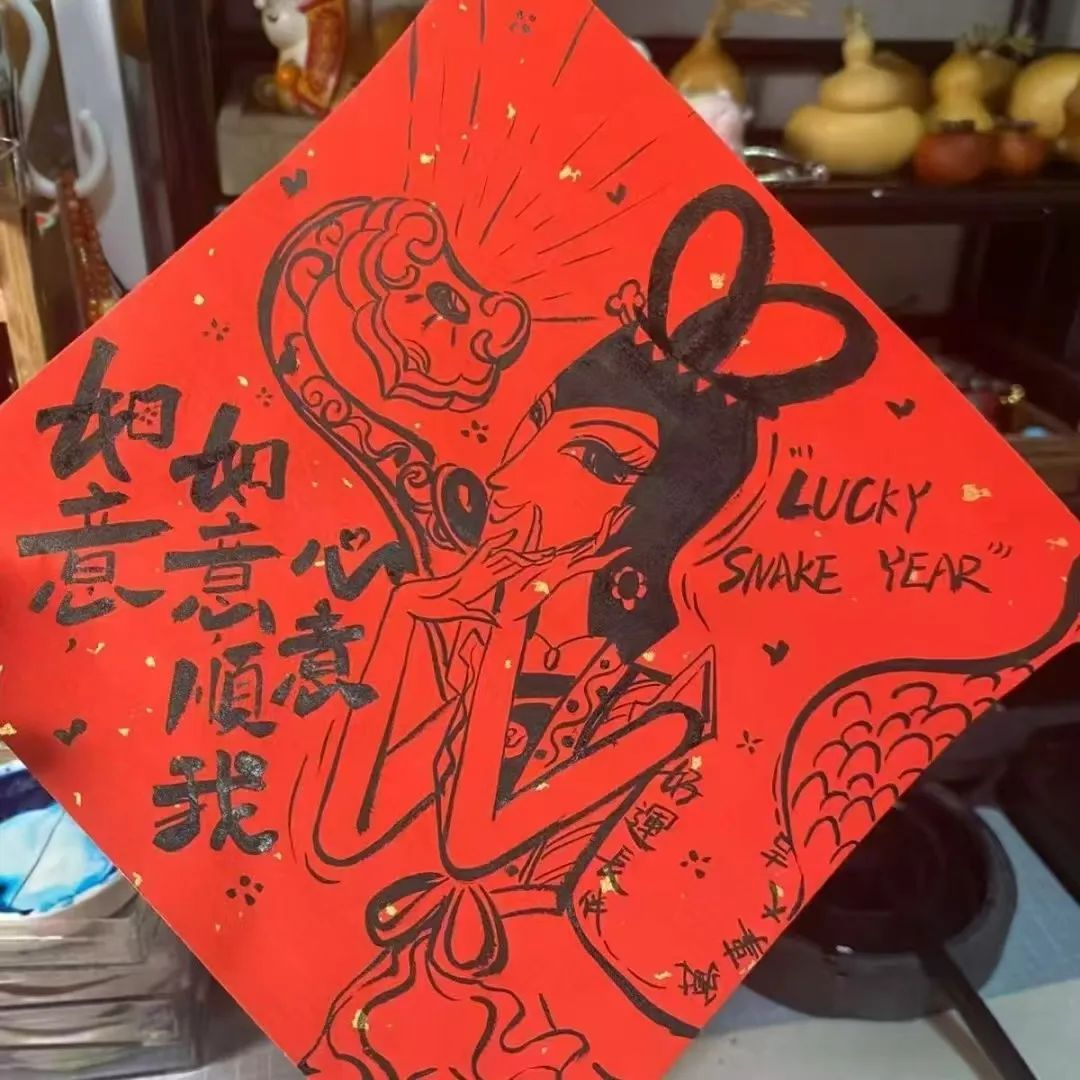 如意,
如意順我
心意
"LUCKY
SNAKE YEAR"